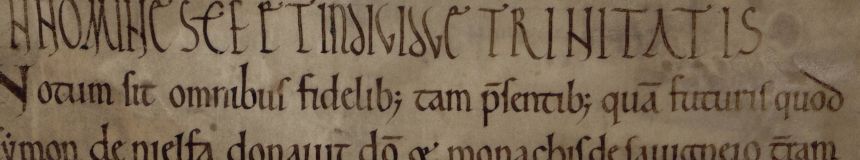 N NOMINE SCE ET INDIVIDVE TRINITATIS
Notum sit omnibus fidelib; tam p̄sentib; quā futuris quod
ymon de nielfa donauit dō & monachis de sauigneio t̄ram